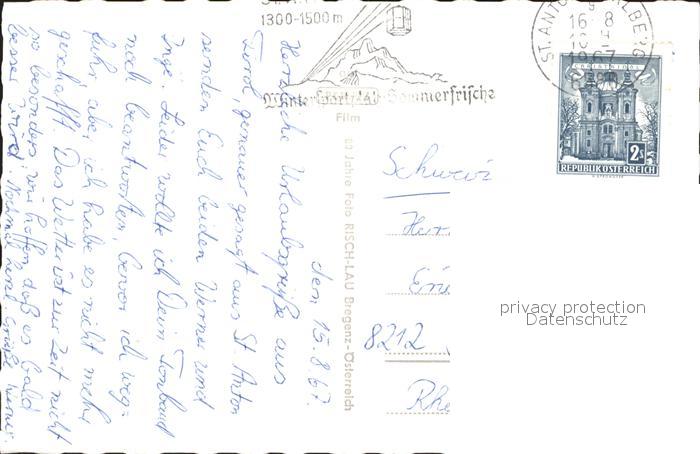 1300-1500 m
Wintersportplatz-Sommerfrische
ST. ANTON
16 8
1967
CHRISTKINDL
2 S
REPUBLIK ÖSTERREICH
Film
60 Jahre Foto RISCH-LAU Bregenz-Österreich
den 15.8.67.
Herzliche Urlaubsgrüße aus
Tirol, genauer gesagt aus St. Anton
senden Euch beiden Werner und
Inge. Leider wollte ich Dein Tonband
noch beantworten, bevor ich weg=
fuhr, aber ich habe es nicht mehr
geschafft. Das Wetter ist zur Zeit nicht
so besonders, wir hoffen, daß es bald
besser wird. Nochmals viel Grüße Werner.
Schweiz
Herr
8212
Rhe
privacy protection
Datenschutz